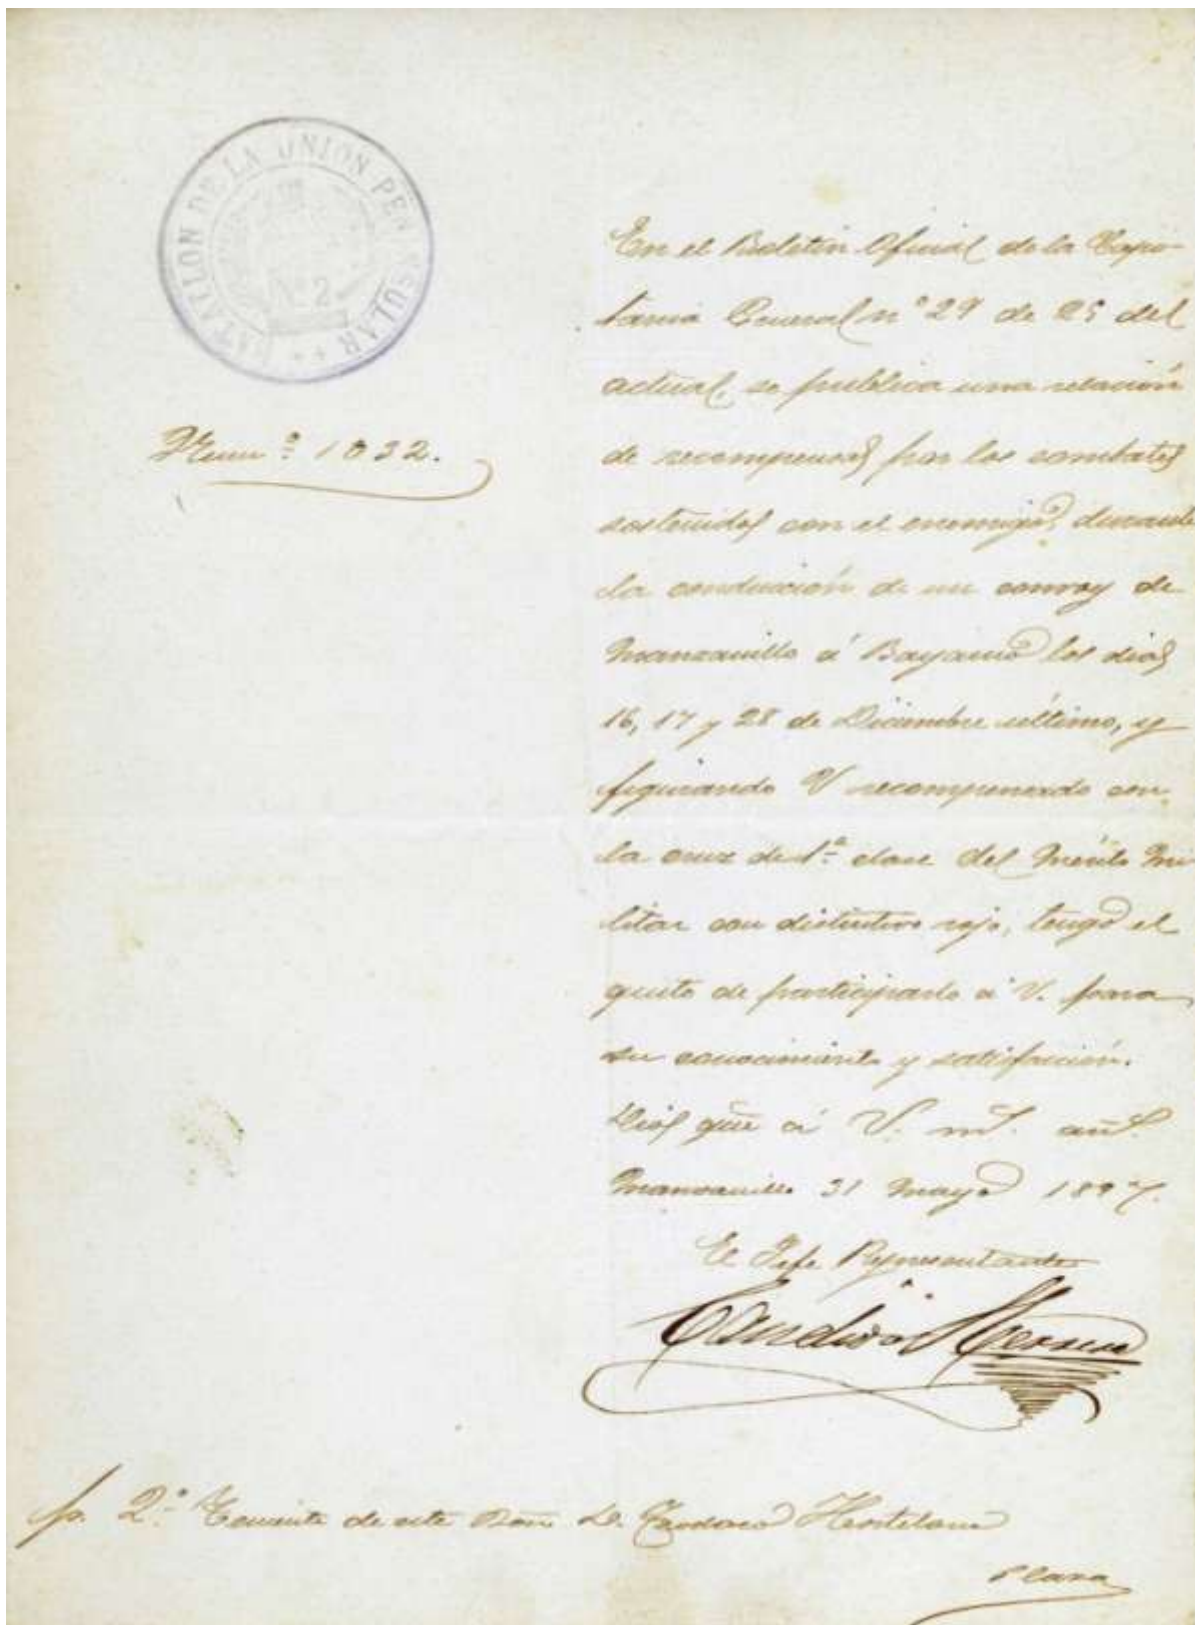 BATALLON DE LA UNION PENINSULAR
Nº 2
Núm.º 1032.
En el Boletin Oficial de la Capi
tania General nº 29 de 25 del
actual, se publica una relación
de recompensas por los combates
sostenidos con el enemigo, durante
la conducción de un convoy de
Manzanillo á Bayamo los dias
16, 17 y 28 de Diciembre último, y
figurando V recompensado con
la cruz de 1ª clase del Mérito Mi
litar con distintivo rojo, tengo el
gusto de participarlo á V. para
su conocimiento y satisfacción.
Dios gue á V. ms. as.
Manzanillo 31 Mayo 1897.
El Jefe Representante
Candido Herrera
2.º Teniente de este Bon D. Teodoro